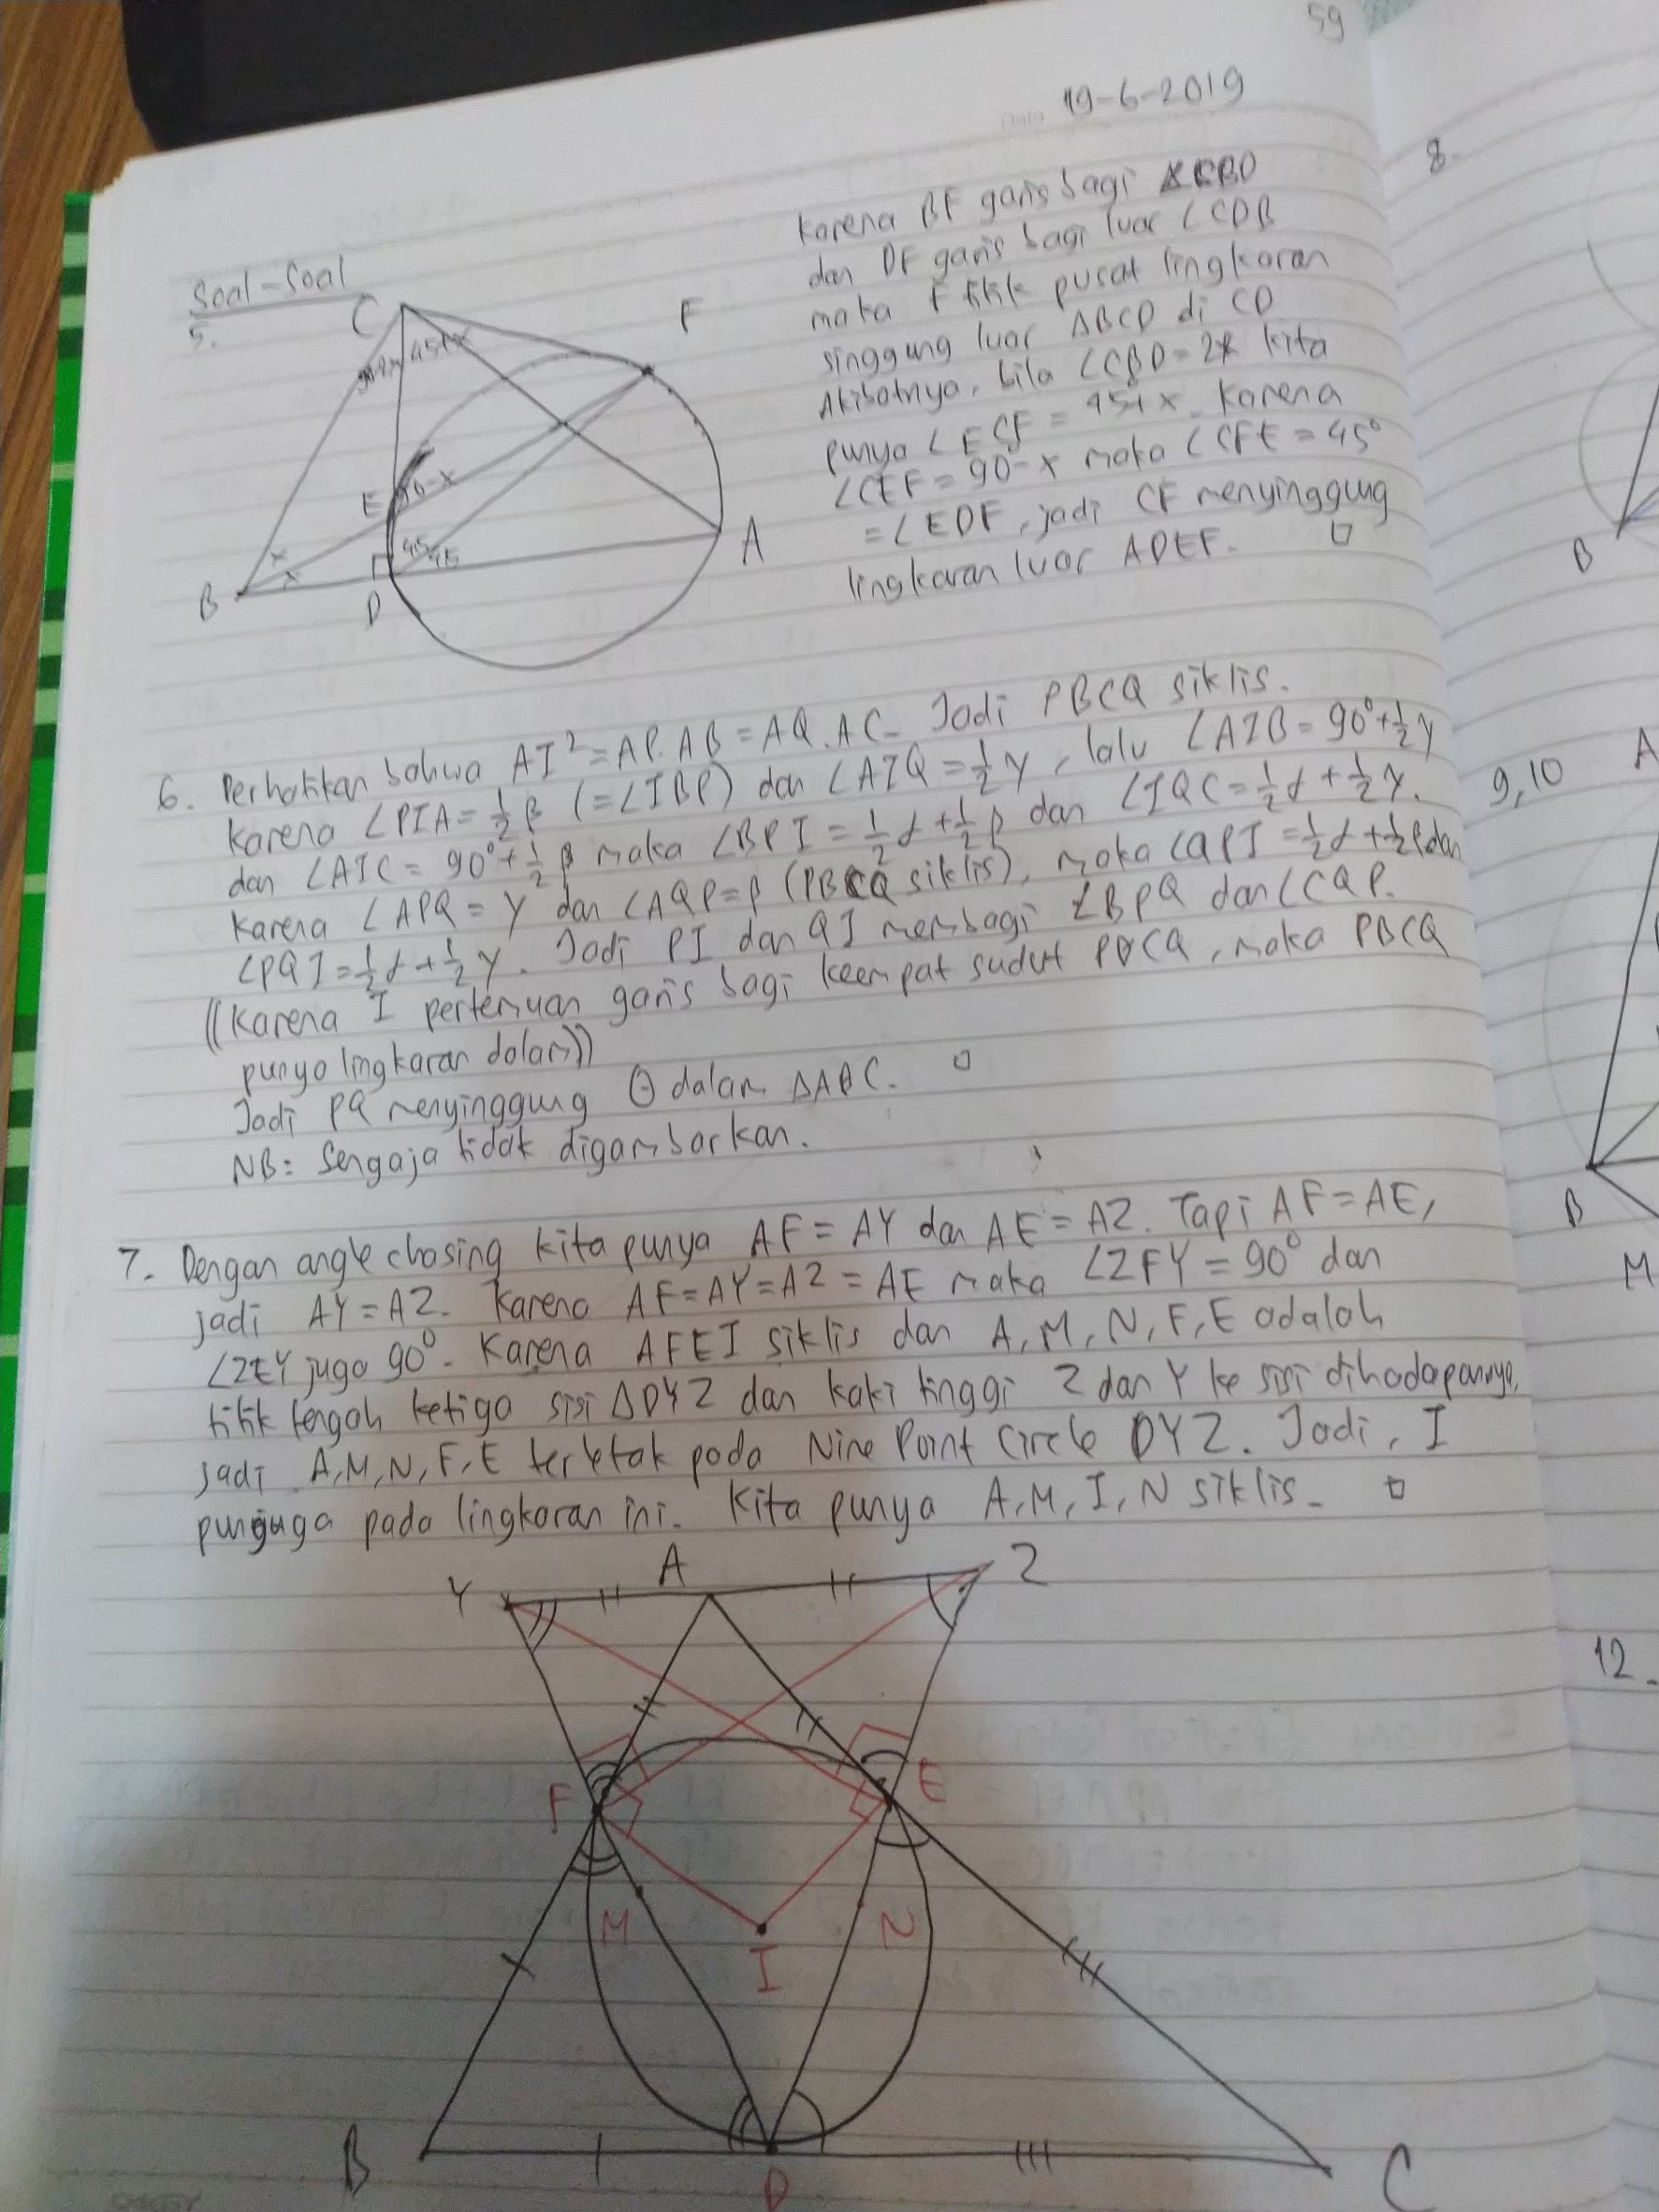 59
19-6-2019
Soal-Soal
5.
C
F
E
B
D
A
x
x
90-x
45
45
45+x
Karena BF garis bagi ∠CBD
dan DF garis bagi luar ∠CDB
maka F titik pusat lingkaran
singgung luar ΔBCD di CD
Akibatnya, bila ∠CBD = 2x kita
punya ∠ECF = 45+x. Karena
∠CEF = 90-x maka ∠CFE = 45°
= ∠EDF, jadi CF menyinggung
lingkaran luar ADEF. □
6. Perhatikan bahwa AI² = AP.AB = AQ.AC. Jadi PBCQ siklis.
Karena ∠PIA = ½β (=∠IBP) dan ∠AIQ = ½γ, lalu ∠AIB = 90°+½γ
dan ∠AIC = 90°+½β maka ∠BPI = ½α+½β dan ∠IQC = ½α+½γ.
Karena ∠APQ = γ dan ∠AQP = β (PBCQ siklis), maka ∠QPI = ½α+½β dan
∠PQI = ½α+½γ. Jadi PI dan QI membagi ∠BPQ dan ∠CQP.
((Karena I pertemuan garis bagi keempat sudut PBCQ, maka PBCQ
punya lingkaran dalam))
Jadi PQ menyinggung ⊙ dalam ΔABC. □
NB: Sengaja tidak digambarkan.
7. Dengan angle chasing kita punya AF = AY dan AE = AZ. Tapi AF = AE,
jadi AY = AZ. Karena AF = AY = AZ = AE maka ∠ZFY = 90° dan
∠ZEY juga 90°. Karena AFEI siklis dan A, M, N, F, E adalah
titik tengah ketiga sisi ΔDYZ dan kaki tinggi Z dan Y ke sisi dihadapannya,
jadi A, M, N, F, E terletak pada Nine Point Circle DYZ. Jadi, I
punjuga pada lingkaran ini. Kita punya A, M, I, N siklis. □
Y
A
Z
F
E
M
N
I
B
D
C
8.
B
9,10
A
B
M
12.